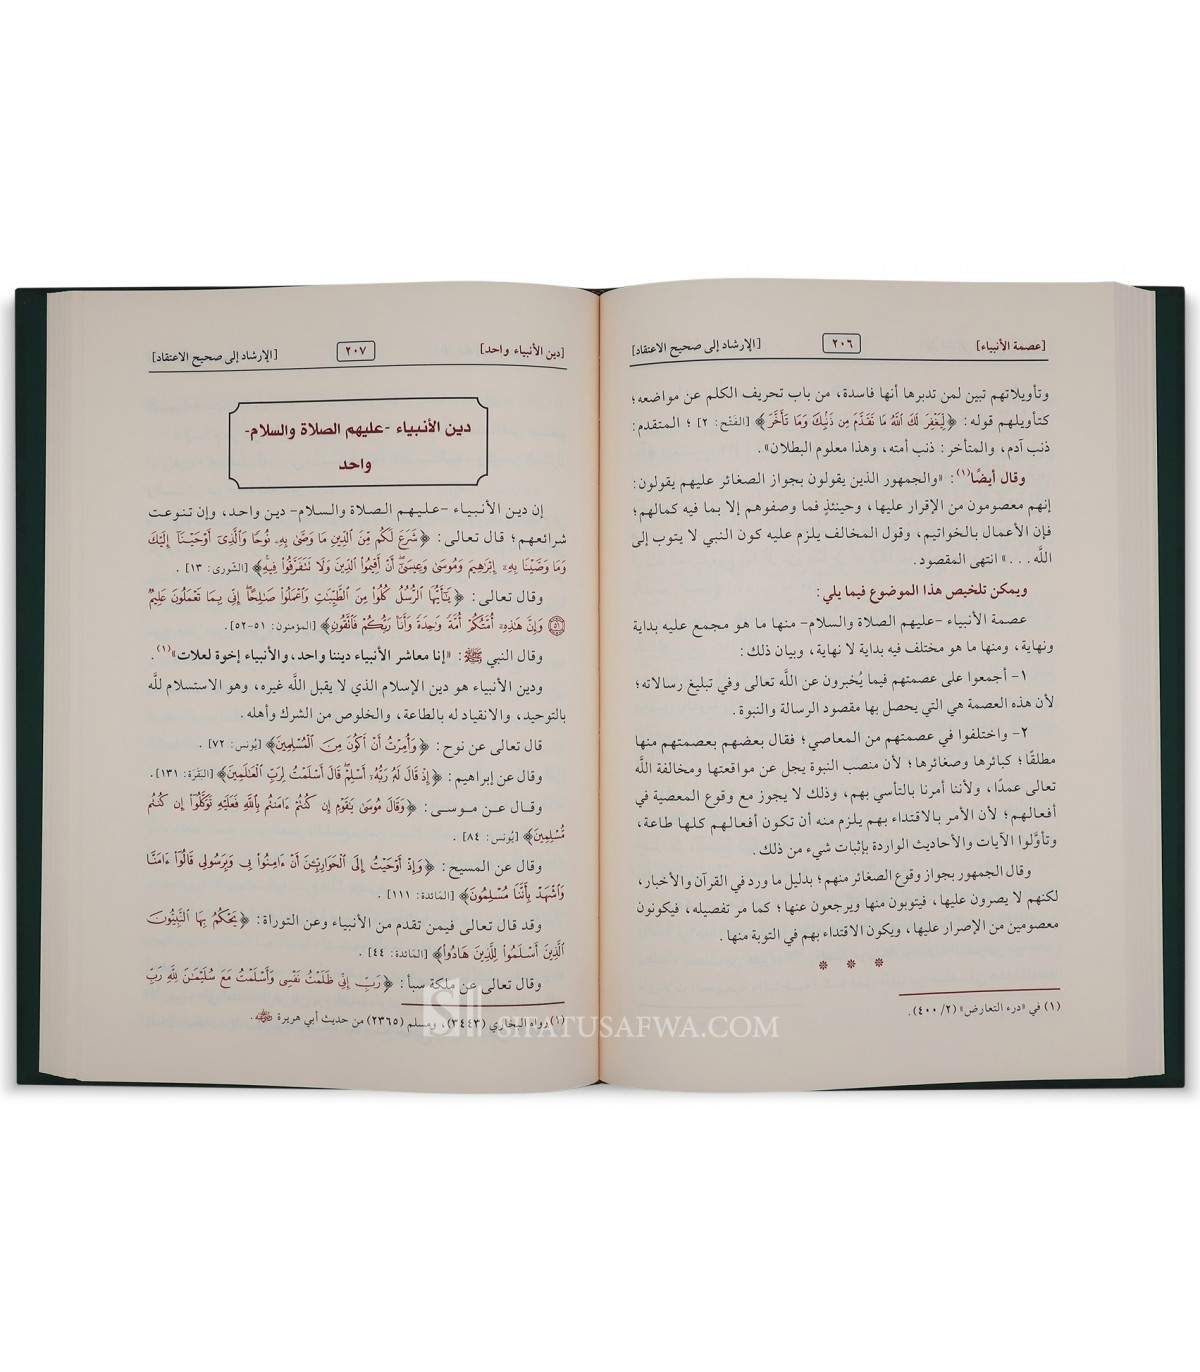 [عصمة الأنبياء] ٢٠٦ [الإرشاد إلى صحيح الاعتقاد]
وتأويلاتهم تبين لمن تدبرها أنها فاسدة، من باب تحريف الكلم عن مواضعه؛
كتأويلهم قوله: ﴿لِّيَغْفِرَ لَكَ ٱللَّهُ مَا تَقَدَّمَ مِن ذَنۢبِكَ وَمَا تَأَخَّرَ﴾ [الفَتْح: ٢]؛ المتقدم:
ذنب آدم، والمتأخر: ذنب أمته، وهذا معلوم البطلان».
وقال أيضًا(١): «والجمهور الذين يقولون بجواز الصغائر عليهم يقولون:
إنهم معصومون من الإقرار عليها، وحينئذٍ فما وصفوهم إلا بما فيه كمالهم؛
فإن الأعمال بالخواتيم، وقول المخالف يلزم عليه كون النبي لا يتوب إلى
اللَّه...» انتهى المقصود.
ويمكن تلخيص هذا الموضوع فيما يلي:
عصمة الأنبياء -عليهم الصلاة والسلام- منها ما هو مجمع عليه بداية
ونهاية، ومنها ما هو مختلف فيه بداية لا نهاية، وبيان ذلك:
١- أجمعوا على عصمتهم فيما يُخبرون عن اللَّه تعالى وفي تبليغ رسالاته؛
لأن هذه العصمة هي التي يحصل بها مقصود الرسالة والنبوة.
٢- واختلفوا في عصمتهم من المعاصي؛ فقال بعضهم بعصمتهم منها
مطلقًا؛ كبائرها وصغائرها؛ لأن منصب النبوة يجل عن مواقعتها ومخالفة اللَّه
تعالى عمدًا، ولأننا أمرنا بالتأسي بهم، وذلك لا يجوز مع وقوع المعصية في
أفعالهم؛ لأن الأمر بالاقتداء بهم يلزم منه أن تكون أفعالهم كلها طاعة،
وتأوَّلوا الآيات والأحاديث الواردة بإثبات شيء من ذلك.
وقال الجمهور بجواز وقوع الصغائر منهم؛ بدليل ما ورد في القرآن والأخبار،
لكنهم لا يصرون عليها، فيتوبون منها ويرجعون عنها؛ كما مر تفصيله، فيكونون
معصومين من الإصرار عليها، ويكون الاقتداء بهم في التوبة منها.
(١) في «درء التعارض» (٢/ ٤٠٠).
[دين الأنبياء واحد] ٢٠٧ [الإرشاد إلى صحيح الاعتقاد]
دين الأنبياء -عليهم الصلاة والسلام-
واحد
إن دين الأنبياء -عليهم الصلاة والسلام- دين واحد، وإن تنوعت
شرائعهم؛ قال تعالى: ﴿شَرَعَ لَكُم مِّنَ ٱلدِّينِ مَا وَصَّىٰ بِهِۦ نُوحًا وَٱلَّذِىٓ أَوْحَيْنَآ إِلَيْكَ
وَمَا وَصَّيْنَا بِهِۦٓ إِبْرَٰهِيمَ وَمُوسَىٰ وَعِيسَىٰٓ أَنْ أَقِيمُوا۟ ٱلدِّينَ وَلَا تَتَفَرَّقُوا۟ فِيهِ﴾ [الشورى: ١٣].
وقال تعالى: ﴿يَـٰٓأَيُّهَا ٱلرُّسُلُ كُلُوا۟ مِنَ ٱلطَّيِّبَـٰتِ وَٱعْمَلُوا۟ صَـٰلِحًا إِنِّى بِمَا تَعْمَلُونَ عَلِيمٌ
٥١ وَإِنَّ هَـٰذِهِۦٓ أُمَّتُكُمْ أُمَّةً وَٰحِدَةً وَأَنَا۠ رَبُّكُمْ فَٱتَّقُونِ﴾ [المؤمنون: ٥١-٥٢].
وقال النبي ﷺ: «إنا معاشر الأنبياء ديننا واحد، والأنبياء إخوة لعلات»(١).
ودين الأنبياء هو دين الإسلام الذي لا يقبل اللَّه غيره، وهو الاستسلام للَّه
بالتوحيد، والانقياد له بالطاعة، والخلوص من الشرك وأهله.
قال تعالى عن نوح: ﴿وَأُمِرْتُ أَنْ أَكُونَ مِنَ ٱلْمُسْلِمِينَ﴾ [يُونس: ٧٢].
وقال عن إبراهيم: ﴿إِذْ قَالَ لَهُۥ رَبُّهُۥٓ أَسْلِمْ قَالَ أَسْلَمْتُ لِرَبِّ ٱلْعَـٰلَمِينَ﴾ [البَقَرَة: ١٣١].
وقال عن موسى: ﴿وَقَالَ مُوسَىٰ يَـٰقَوْمِ إِن كُنتُمْ ءَامَنتُم بِٱللَّهِ فَعَلَيْهِ تَوَكَّلُوٓا۟ إِن كُنتُم
مُّسْلِمِينَ﴾ [يُونس: ٨٤].
وقال عن المسيح: ﴿وَإِذْ أَوْحَيْتُ إِلَى ٱلْحَوَارِيِّـۧنَ أَنْ ءَامِنُوا۟ بِى وَبِرَسُولِى قَالُوٓا۟ ءَامَنَّا
وَٱشْهَدْ بِأَنَّنَا مُسْلِمُونَ﴾ [المَائدة: ١١١].
وقد قال تعالى فيمن تقدم من الأنبياء وعن التوراة: ﴿يَحْكُمُ بِهَا ٱلنَّبِيُّونَ
ٱلَّذِينَ أَسْلَمُوا۟ لِلَّذِينَ هَادُوا۟﴾ [المَائدة: ٤٤].
وقال تعالى عن ملكة سبأ: ﴿رَبِّ إِنِّى ظَلَمْتُ نَفْسِى وَأَسْلَمْتُ مَعَ سُلَيْمَـٰنَ لِلَّهِ رَبِّ
(١) رواه البخاري (٣٤٤٣)، ومسلم (٢٣٦٥) من حديث أبي هريرة
SIFATUSAFWA.COM